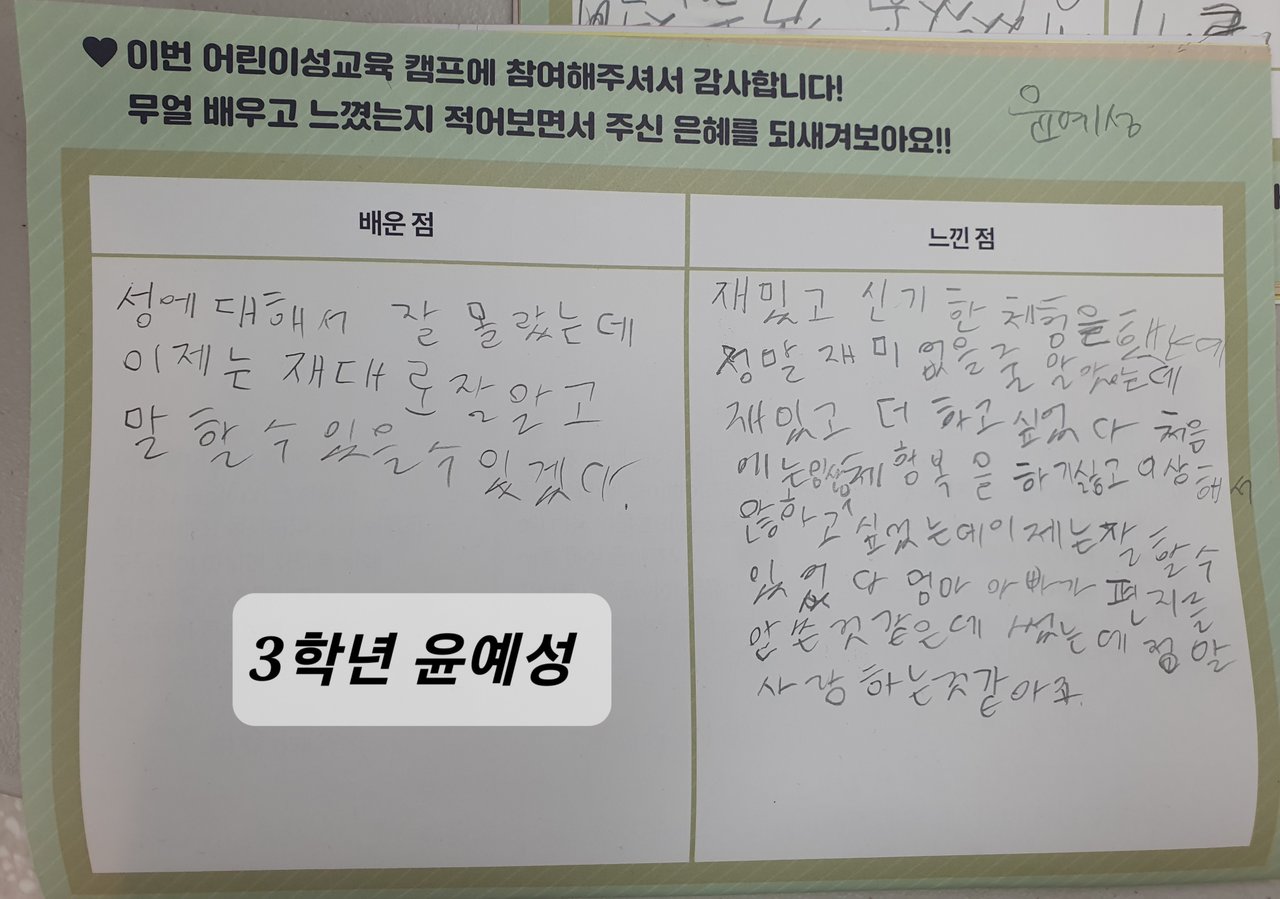 ♥ 이번 어린이성교육 캠프에 참여해주셔서 감사합니다!
무얼 배우고 느꼈는지 적어보면서 주신 은혜를 되새겨보아요!!
윤예성
배운 점
성에 대해서 잘 몰랐는데
이제는 재대로 잘 알고
말 할 수 있을 수 있겠다.
3학년 윤예성
느낀 점
재밌고 신기한 체험을 했는데
정말 재미없을 줄 알았는데
재밌고 더 하고 싶었다 처음
에는 행복을 하기 싫고 이상해서
않하고 싶었는데 이제는 잘 할 수
있었다 엄마 아빠가 편지를
안 쓴 것 같은데 썼는데 정말
사랑하는 것 같아요.